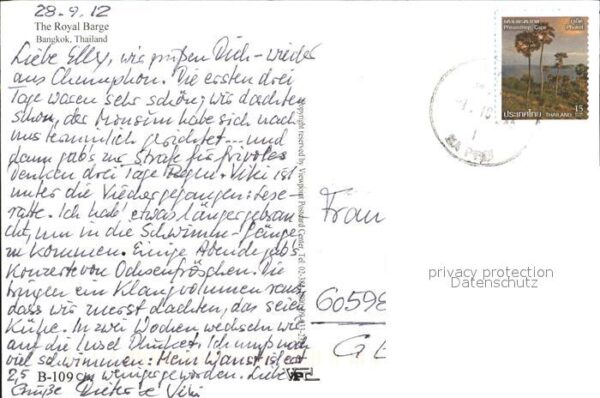 28.9.12
The Royal Barge
Bangkok, Thailand
Liebe Elly, wir grüßen Dich wieder
aus Chumphon. Die ersten drei
Tage waren sehr schön; wir dachten
schon, der Monsun habe sich nach
uns terminlich gerichtet... und
dann gab's zur Strafe für frivoles
Denken drei Tage Regen. Viki ist
unter die Viedergegangen: Lese-
ratte. Ich hab' etwas länger gebrau-
cht, um in die Schwimm-Gänge
zu kommen. Einige Abende gab's
Konzerte von Ochsenfröschen. Die
bringen ein Klangvolumen raus,
dass wir zuerst dachten, das seien
Kühe. In zwei Wochen wechseln wir
auf die Insel Phuket. Ich muß noch
viel schwimmen: Mein Wanst ist erst
2,5 cm weniger geworden. Liebe
Grüße Dieter & Viki
B-109
Copyright reserved by Viewpoint Postcard Center, Tel.
Frau
60598
GE
Phuket
15
ประเทศไทย THAILAND
privacy protection
Datenschutz